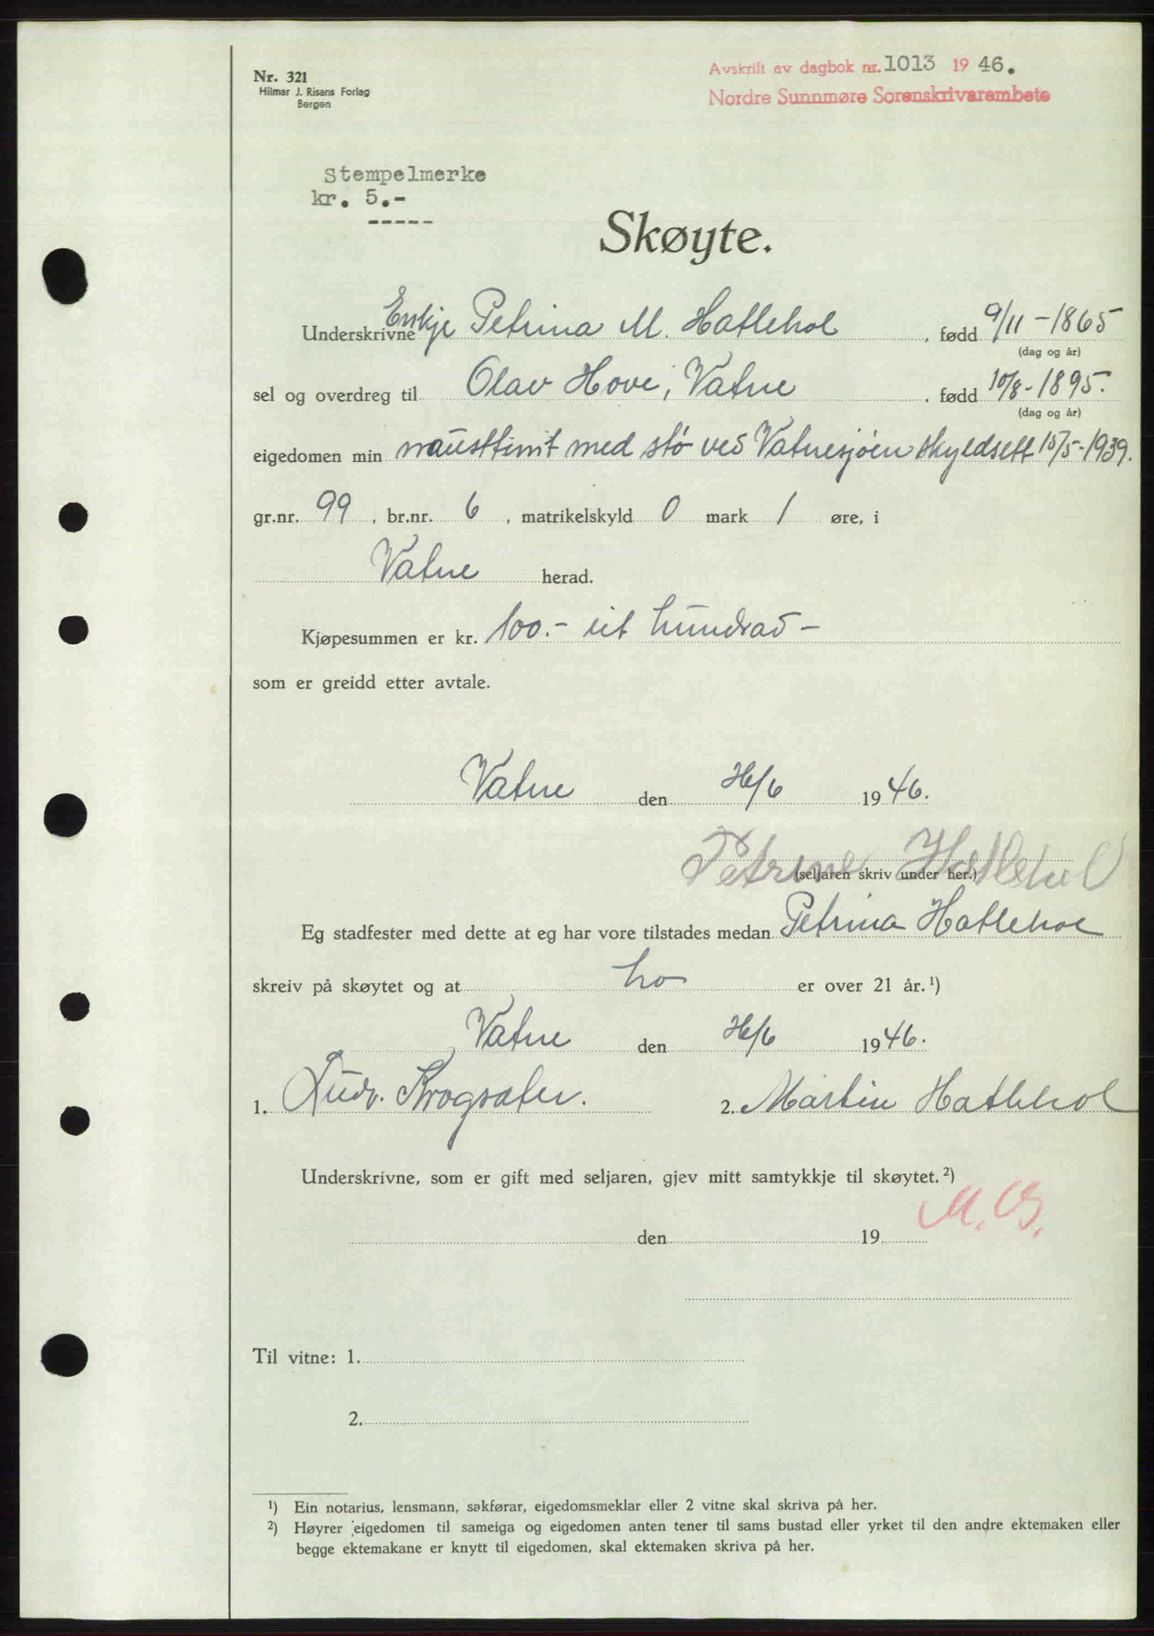 Nr. 321
Hilmar J. Risans Forlag
Bergen
Avskrift av dagbok nr. 1013 1946.
Nordre Sunnmøre Sorenskrivarembete
Stempelmerke
kr. 5.-
-----
Skøyte.
Underskrivne Enkje Petrina M. Hatlehol, fødd 9/11-1865
(dag og år)
sel og overdreg til Olav Hove, Vatne, fødd 10/8-1895.
(dag og år)
eigedomen min nausttint med stø ved Vatnesjøen skyldsett 15/5-1939.
gr.nr. 99, br.nr. 6, matrikelskyld 0 mark 1 øre, i
Vatne herad.
Kjøpesummen er kr. 100.- eit hundrad -
som er greidd etter avtale.
Vatne den 1946.
Petrine Hatlehol
(seljaren skriv under her.)
Eg stadfester med dette at eg har vore tilstades medan Petrina Hatlehol
skreiv på skøytet og at ho er over 21 år.¹)
Vatne den 1946.
1. Ludv. Krogsæter. 2. Martin Hatlehol
Underskrivne, som er gift med seljaren, gjev mitt samtykkje til skøytet.²)
M.
den 19
Til vitne: 1.
2.
¹) Ein notarius, lensmann, sakførar, eigedomsmeklar eller 2 vitne skal skriva på her.
²) Høyrer eigedomen til sameiga og eigedomen anten tener til sams bustad eller yrket til den andre ektemaken eller
begge ektemakane er knytt til eigedomen, skal ektemaken skriva på her.